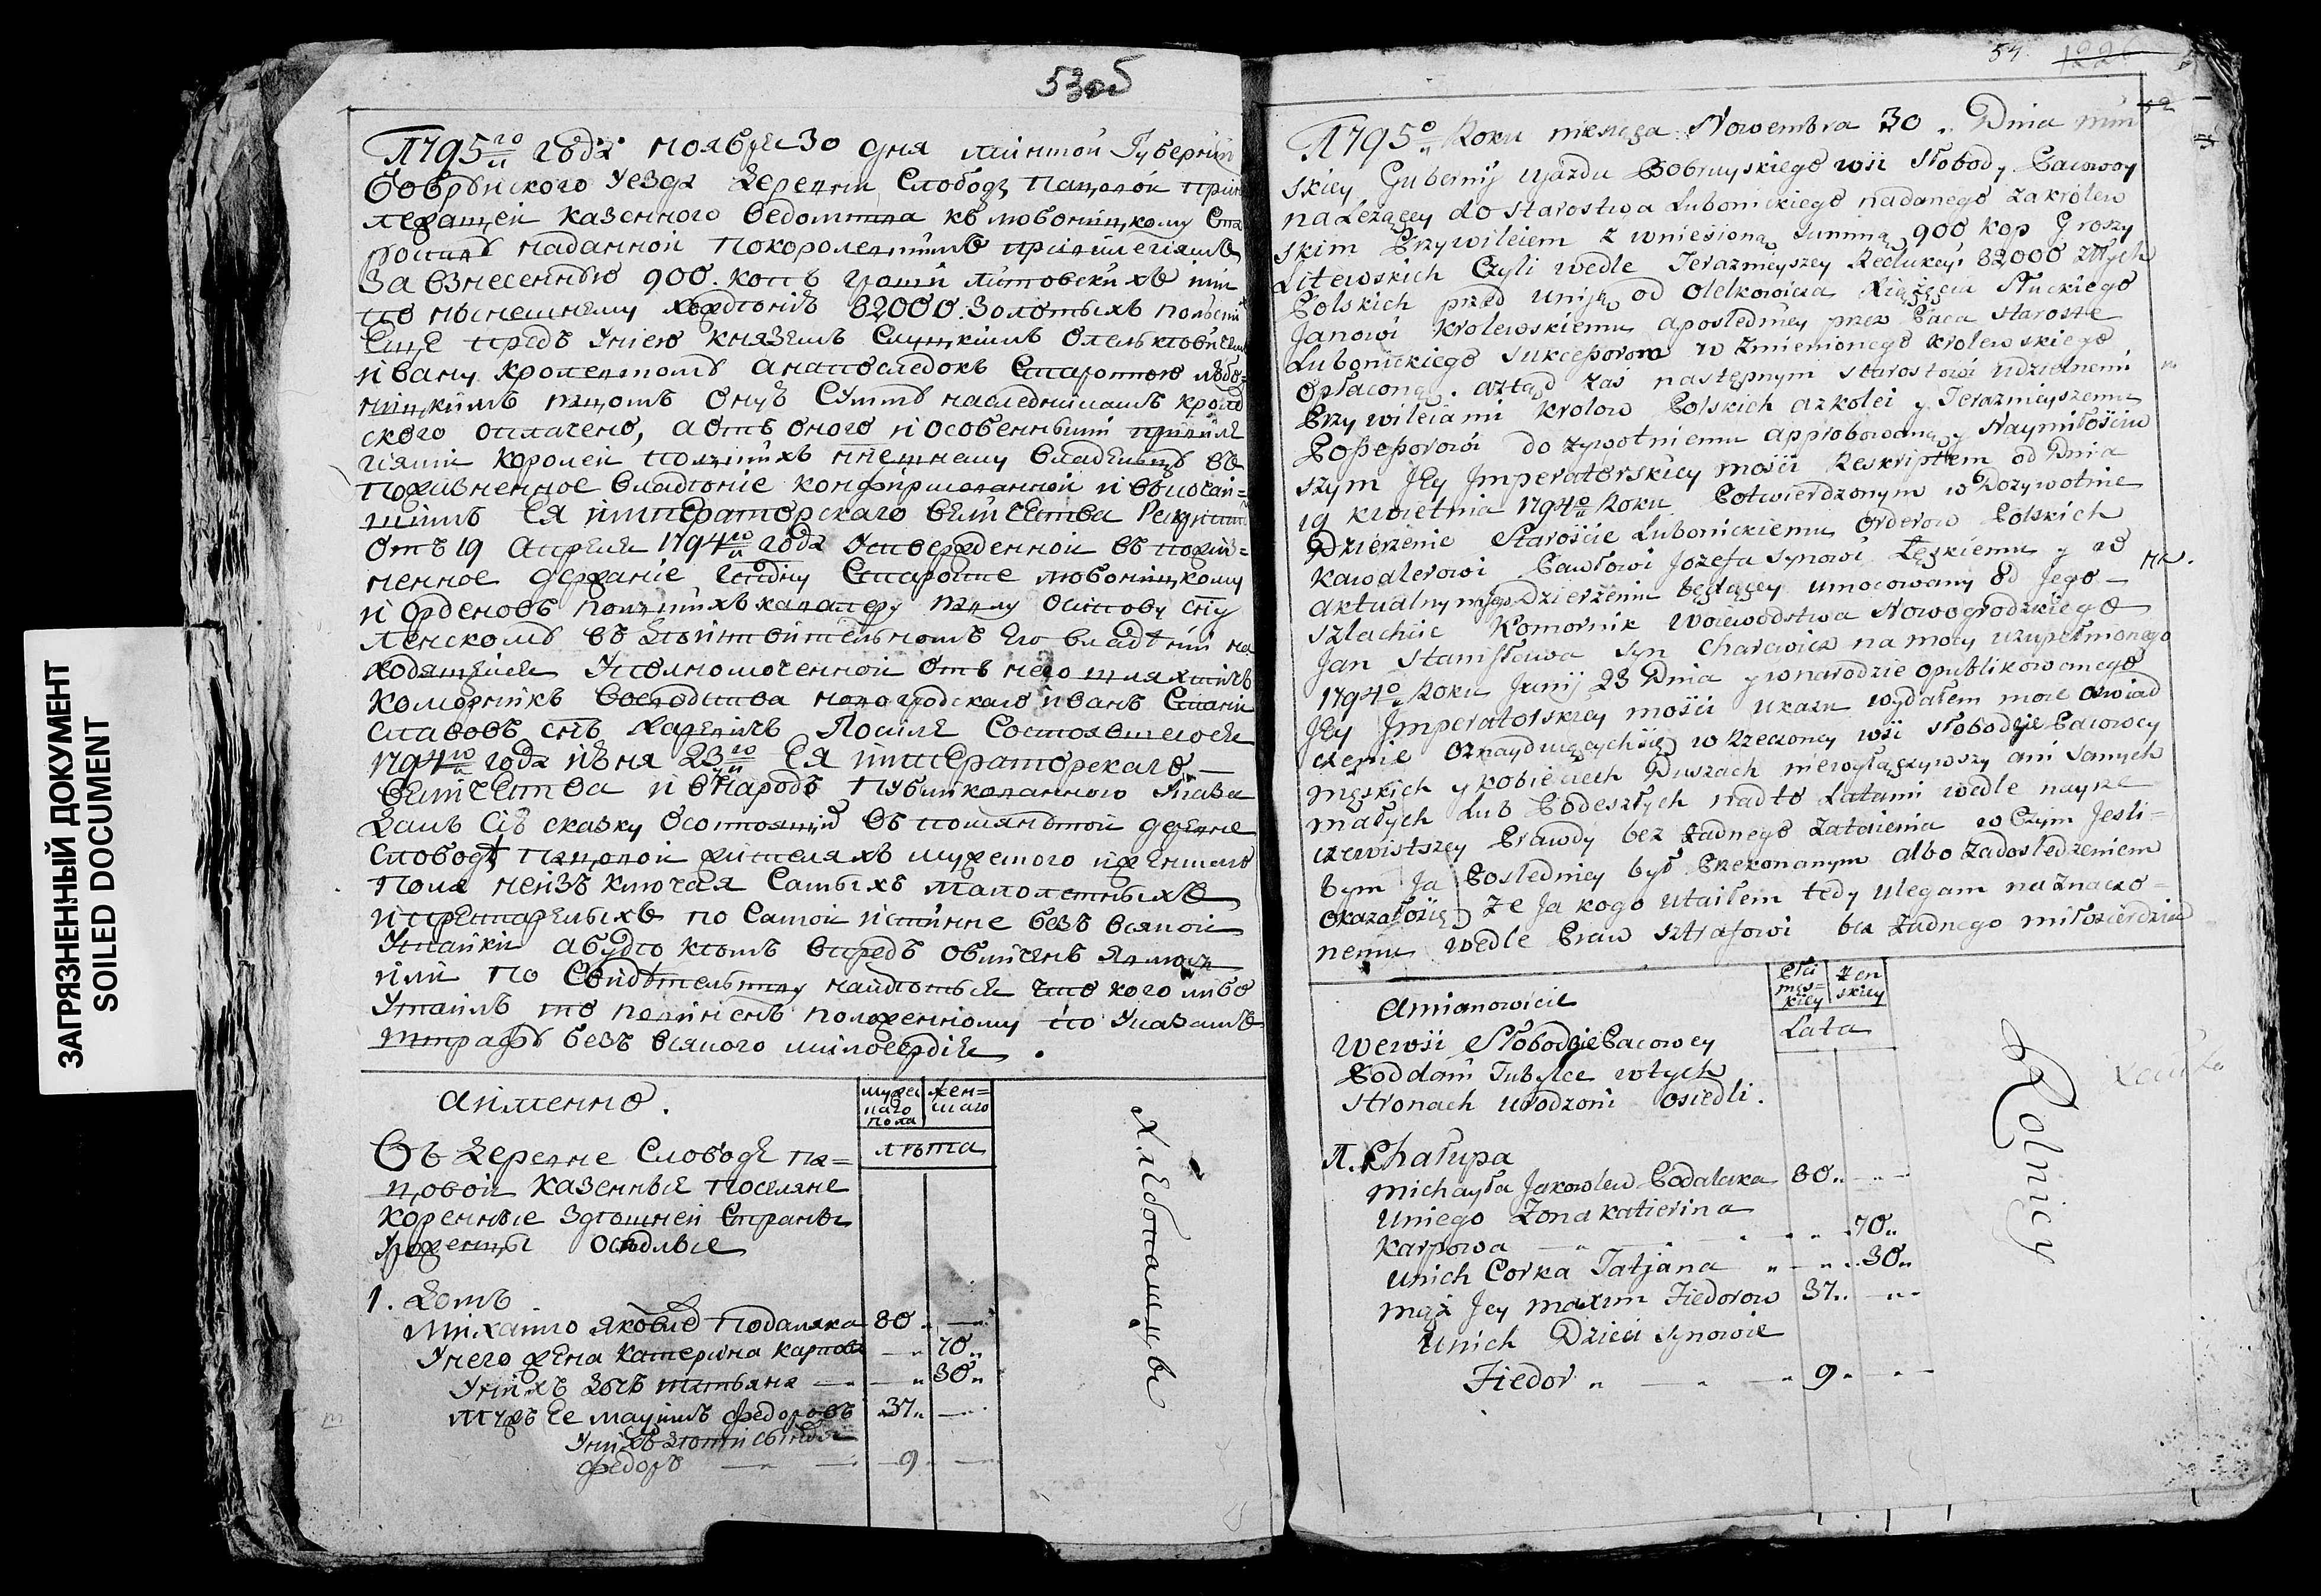 ЗАГРЯЗНЕННЫЙ ДОКУМЕНТ
SOILED DOCUMENT
53об
1795го года ноября 30 дня Минской Губернии
бобруйского уезда деревни Слободы Пацовой прина
лежащей казенного ведомства къ любоницкому Ста
роству наданной по королевскимъ привилегиямъ
За взнесенныю 900. копъ грошей литовскихъ или
по нынешнему 82000. Золотыхъ польски
Еще предъ Униею княземъ Слуцкимъ Олельковичемъ
Ивану кролевскому а напоследокъ Старостою любо=
ницкимъ Пацомъ Онуѣ Сумму наследникамъ кролев
ского оплачено, а отъ оного и особенными привиле
гиями королей польскихъ нынешнему владельцу въ
пожизненное владение конфирмованной и высочай=
шимъ Ея императорскаго величества Рескриптомъ
Отъ 19 Апреля 1794го года Утвержденной въ пожиз=
ненное держание Старосте любоницкому
и Орденовъ польскихъ кавалеру Павлу Осипову сыну
въ действительномъ Его владении на
ходящейся Уполномоченной отъ него шляхтичъ
коморникъ воеводства новогродскаго иванъ Стани
славовъ сынъ Харевичъ После Состоявшегося
1794го года июня 23го Ея императорскаго
величества и внародъ публикованного Указа
далъ Сию сказку Осостоящихъ въ помянутой деревне
Слободе Пацовой жителяхъ мужеского и женского
пола неизъключая Самыхъ малолетныхъ
и престарелыхъ по Самой истинне безъ всякой
Утайки а будто ктомъ впредь обличенъ
или по Свидетельству найдется что кого либо
Утаилъ то повиненъ положенному по Указамъ
штрафу безъ всякого милосердия.
аименно.
мужес
каго
пола
жен=
скаго
лѣта
Въ деревне Слободе па=
цовой казенные поселяне
коренные здешней Страны
Уроженцы Оседлые
1. Домъ
Михайло яковлевъ Подаляка 80
Унего жена катерина карпова 70
Унихъ дочь татьяна 30
Мужъ Ее максимъ федоровъ 37
Унихъ дети сыновья
федоръ 9
Хлебопашцы
54
1795o Roku miesięca Nowembra 30 Dnia min
skiey Gubernij ujazdu Bobruyskiego wsi Słobody Pacowoy
naLezącey do Starostwa Lubonickiego nadanego za krolew
skim Przywileiem z wniesioną Summą 900 kop Groszy
Litewskich Czyli wedle Terazmieyszey Redukcyi 82000 złłych
Polskich przed Uniją od Olelkowicza Xiążęcia Słuckiego
Janowi Krolewskiemu aposledniey przez Paca staroste
Lubonickiego Sukcessorom wzmienionego krolewskiego
opłaconą. aztąd zas następnym starostowi udzielnemi
Przywileiami krolow Polskich azkolei y Terazmieyszemu
Possessorowi do zywotniemu approbowaną y Naymiłościw
szym Jey Jmperatorskiey mości Reskriptem od Dnia
19 kwietnia 1794o Roku Potwierdzonym w Dozywotnie
Dzierzenie Staroscie Lubonickiemu Orderow Polskich
Kawalerowi Pawłowi Jozefa synowi Łęskiemu y w
aktualnym jego Dzierzeniu będącey umocowany od Jego
szlachcic Komornik Woiewodstwa Nowogrodzkiego
Jan Stanisława Syn Charewicz na mocy uzupełnionego
1794o Roku Junij 23 Dnia y wnarodzie opublikowanego
Jey Jmperatorskiey mości ukazu wydałem moie oswiad
czenie Oznayduiących się w Rzeczoney wsi Słobodzie Pacowey
męskich y kobiecych Duszach niewyłączywszy ani samych
małych Lub Podeszłych nadto Latami wedle nayrze
czewistszey Prawdy bez żadnego zataienia w Czym Jesli=
bym Ja Posledniey był Przekonanym albo zadosledzeniem
okazałosię że Ja kogo utaiłem tedy ulegam naznaczo=
nemu wedle Praw sztrafowi bez żadnego miłosierdzia
Amianowicie
Płci
męs=
kiey
żen
skiey
Lata
Wewsi SłobodziePacowey
Poddani Tubylce wtych
stronach urodzoni osiedli.
1. Chałupa
Michayła Jakowlew Podalaka 80
Uniego Zona katierina
Karpowa 70
Unich Corka Tatjana 30
Mąż Jey maxim Fiedorow 37
Unich Dzieci synowie
Fiedor 9
Rolnicy